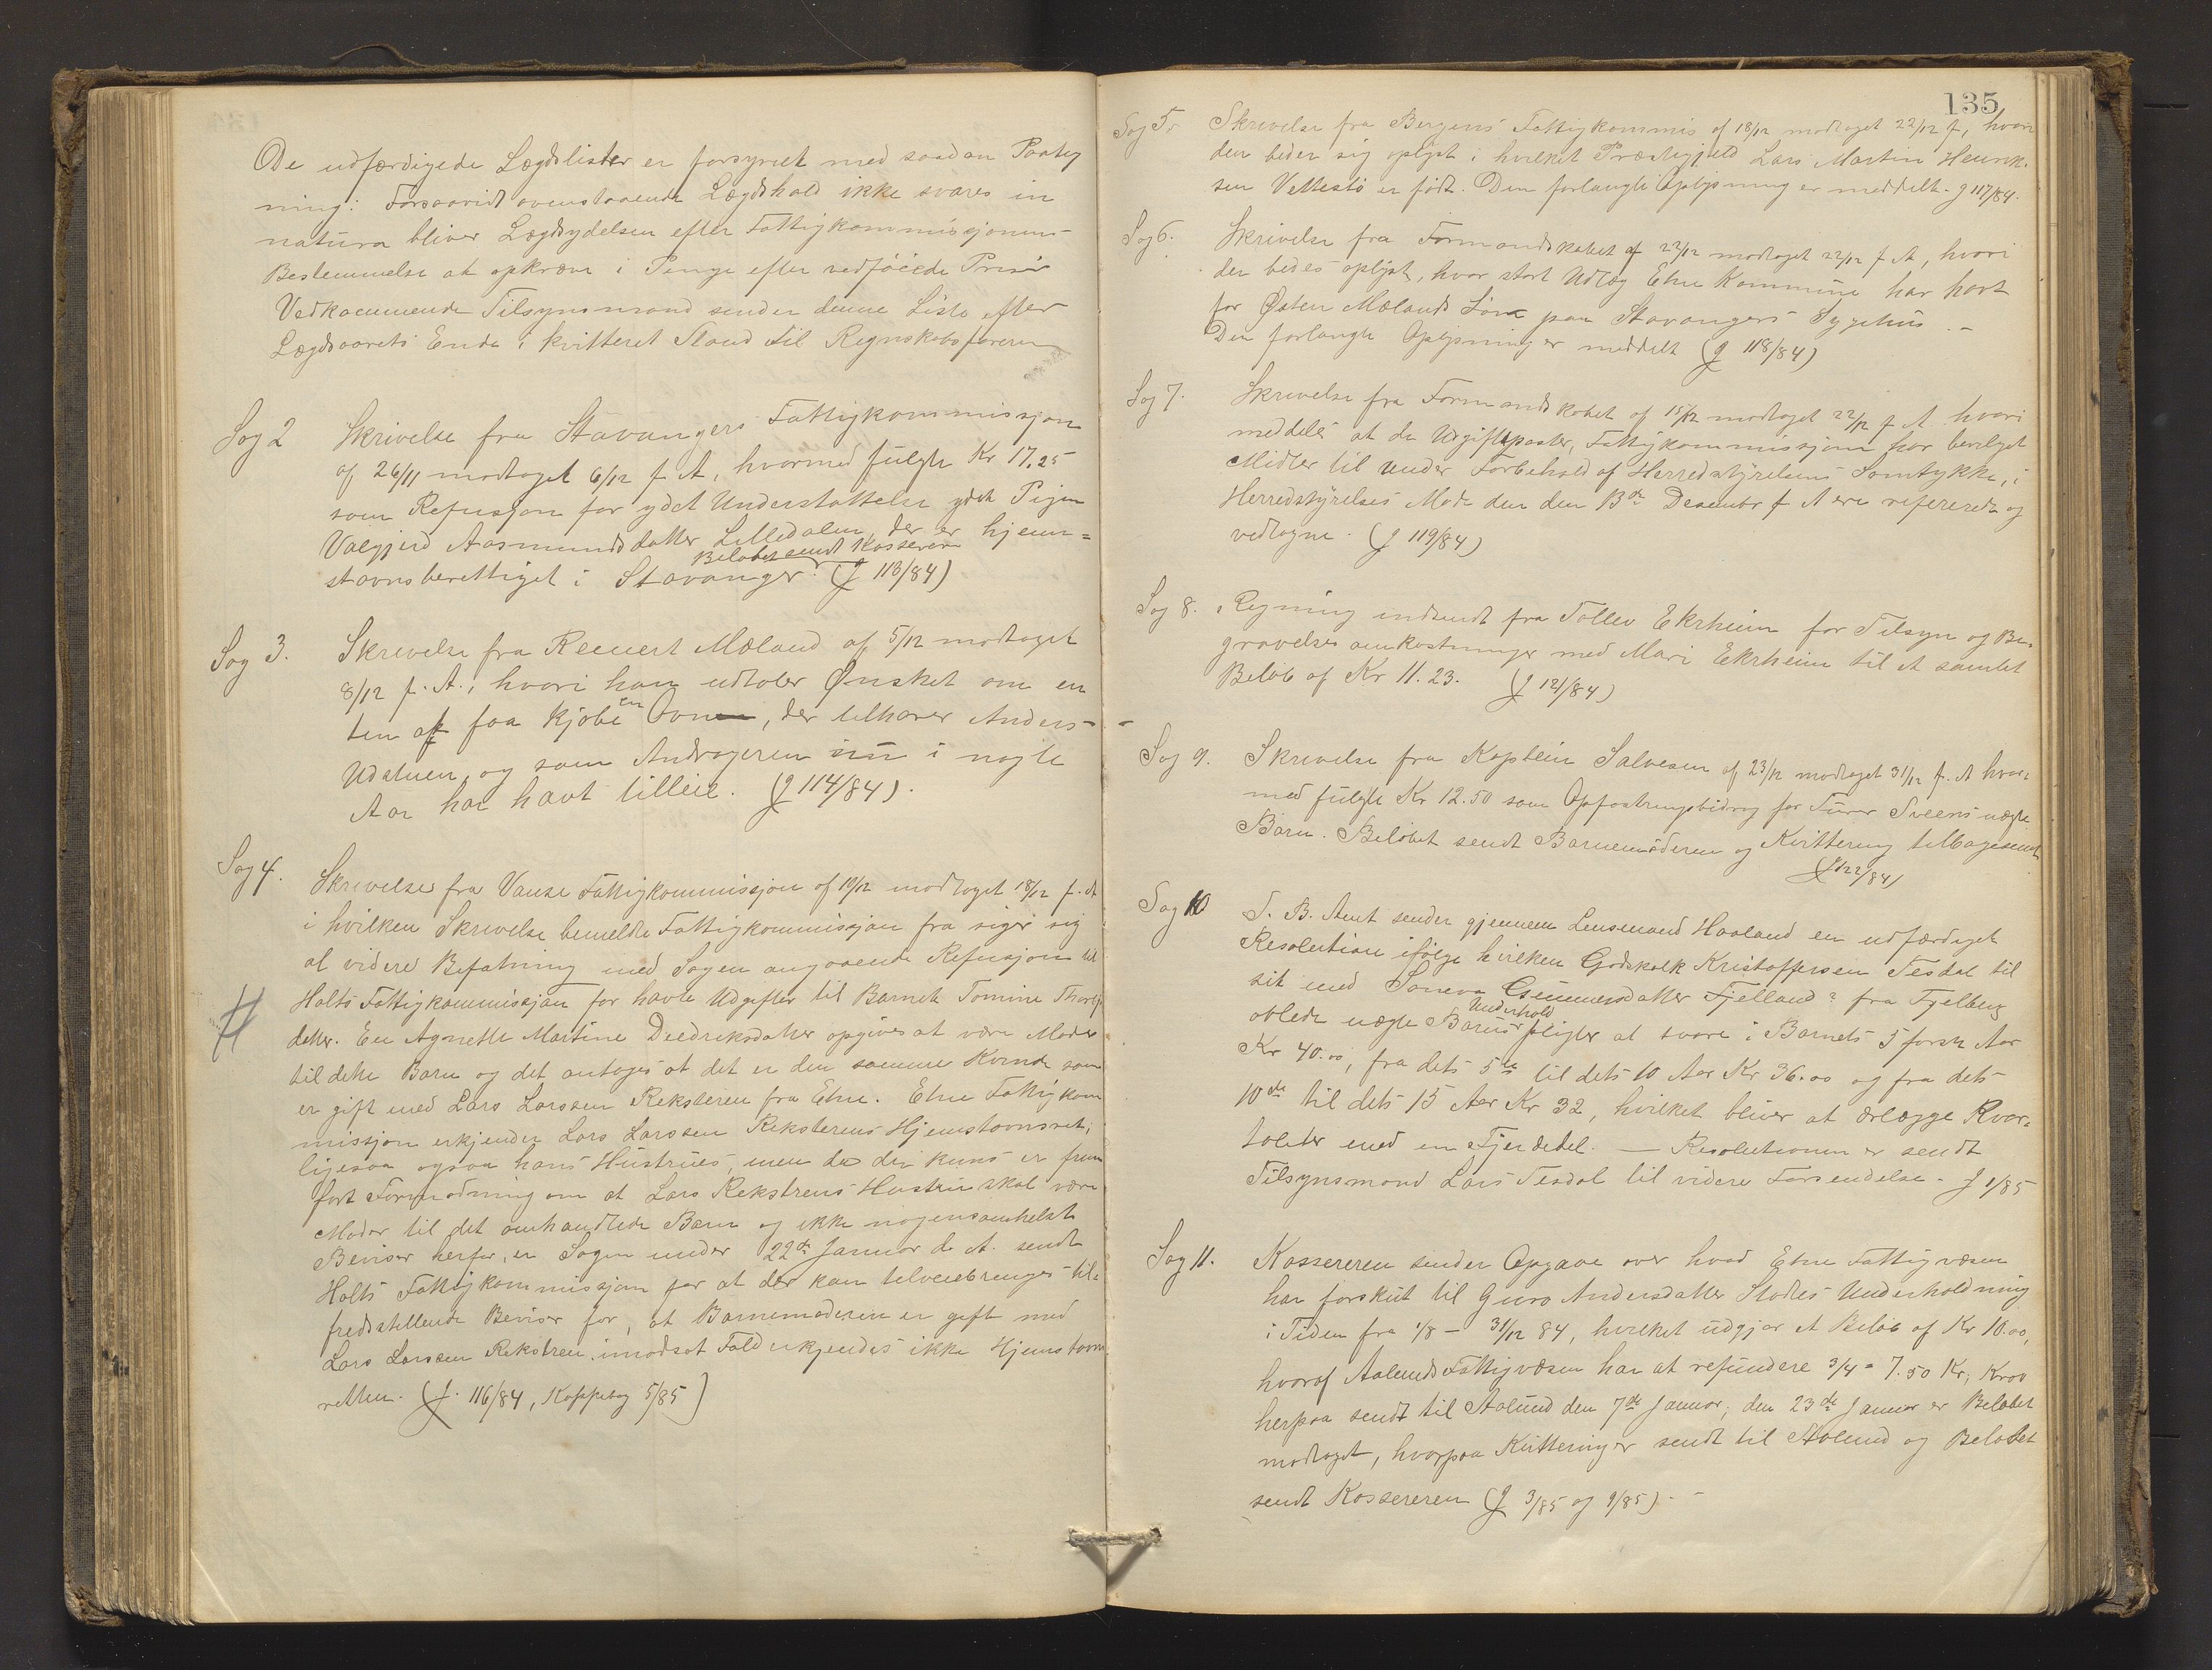 De udfærdigede Lægdslister er forsynet med saadan Paateg
ning: Forsaavidt ovenstaaende Lægdshold ikke svares in
natura bliver Lægdsydelsen efter Fattigkommissjonens
Bestemmelse at opkræve i Penge efter vedføiede Priser
Vedkommende Tilsynsmand sender denne Liste efter
Lægdsaarets Ende i kvitteret Stand til Regnskabsføreren
Sag 2 Skrivelse fra Stavangers Fattigkommissjon
af 26/11 modtaget 6/12 f. A, hvormed fulgte Kr 17.25
som Refusjon for ydet Understøttelse ydet Pigen
Valgjerd Aasmundsdatter Lilledalen der er hjem=
Beløbet sendt Kassereren
stavnsberettiget i Stavanger. (J 113/84)
Sag 3. Skrivelse fra Reinert Mæland af 5/12 modtaget
8/12 f. A., hvori han udtaler Ønsket om en
ten at faa kjøbe en Ovn, der tilhører Anders
Udaluen og som Andrageren nu i nogle
Aar har havt tilleie. (J 114/84).
Sag 4. Skrivelse fra Vanse Fattigkommissjon af 10/12 modtaget 18/12 f. A
i hvilken Skrivelse bemeldte Fattigkommissjon fra siger sig
al videre Befatning med Sagen angaaende Refusjon til
Holts Fattigkommissjon for havte Udgifter til Barnet Tomine Thorls
datter. En Agnethe Martine Diedriksdatter opgives at være Moder
til dette Barn og det antages at det er den samme Kvinde som
er gift med Lars Larssen Reksteren fra Etne. Etne Fattigkom
missjon erkjender Lars Larssen Reksterens Hjemstavnsret,
ligesaa ogsaa hans Hustrues, men da der kuns er frem
ført Formodning om at Lars Rekstrens Hustru skal være
Moder til det omhandlede Barn og ikke nogensomhelst
Beviser herfor, er Sagen under 22de Januar d. A. sendt
Holts Fattigkommissjon for at der kan tilveiebringes til-
fredsstillende Beviser for, at Barnemoderen er gift med
Lars Larssen Rekstren. imodsat Fald erkjendes ikke Hjemstavns
retten. (J. 116/84, Kopibog 5/85)
135
Sag 5. Skrivelse fra Bergens Fattigkommis af 18/12 modtaget 22/12 f, hvori
den beder sig oplyst i hvilket Præstegjeld Lars Martin Henrik-
sen Vettestø er født. Den forlangte Oplysning er meddelt. J 117/84.
Sag 6. Skrivelse fra Formandskabet af 22/12 modtaget 22/12 f A, hvori
der bedes oplyst, hvor stort Udlæg Etne Kommune har havt
for Østen Mælands Søn paa Stavangers Sygehus. -
Den forlangte Oplysning er meddelt (J 118/84)
Sag 7. Skrivelse fra Formandskabet af 15/12 modtaget 22/12 f A hvori
meddeles at de Udgiftsposter, Fattigkommissjonen har bevilget
Midler til under Forbehold af Herredstyrelsens Samtykke, i
Herredstyrelses Møde den den 13de Desember f A ere refererede og
vedtagne. (J 119/84)
Sag 8. Regning indsendt fra Tollev Ekrheim for Tilsyn og Be-
gravelsesomkostninger med Mari Ekrheim til et samlet
Beløb af Kr 11.23. (J 121/84)
Sag 9. Skrivelse fra Kaptein Salvesen af 23/12 modtaget 31/12 f. A hvor-
med fulgte Kr 12.50 som Opfostringsbidrag for Tures Sveens uægte
Barn. Beløbet sendt Barnemoderen og Kvittering tilbagesendt
J 122/84)
Sag 10 S. B. Amt sender gjennem Lensmand Haaland en udfærdiget
Resolution ifølge hvilken Godskalk Kristoffersen Tesdal til
sit med Soneva Gunnersdatter Fjelland? fra Fjelberg
Underhold
avlede uægte Barns pligter at svare i Barnets 5 første Aar
Kr 40.00, fra dets 5te til dets 10 Aar Kr 36.00 og fra dets
10de til dets 15 Aar Kr 32, hvilket bliver at erlægge Kvar-
taliter med en Fjerdedel. — Resolutionen er sendt
Tilsynsmand Lars Tesdal til videre Forsendelse. J 1/85
Sag 11. Kassereren sender Opgave over hvad Etne Fattigvæsen
har forskut til Guro Andersdatter Stødles Underholdning
i Tiden fra 1/8 - 31/12 84, hvilket udgjør et Beløb af Kr 10.00,
hvoraf Aalunds Fattigvæsen har at refundere 3/4 = 7.50 Kr, Krav
herpaa sendt til Aalund den 7de Januar, den 23de Januar er Beløbet
modtaget, hvorpaa Kvittering er sendt til Aalund og Beløbet
sendt Kassereren (J 3/85 og 9/85). -